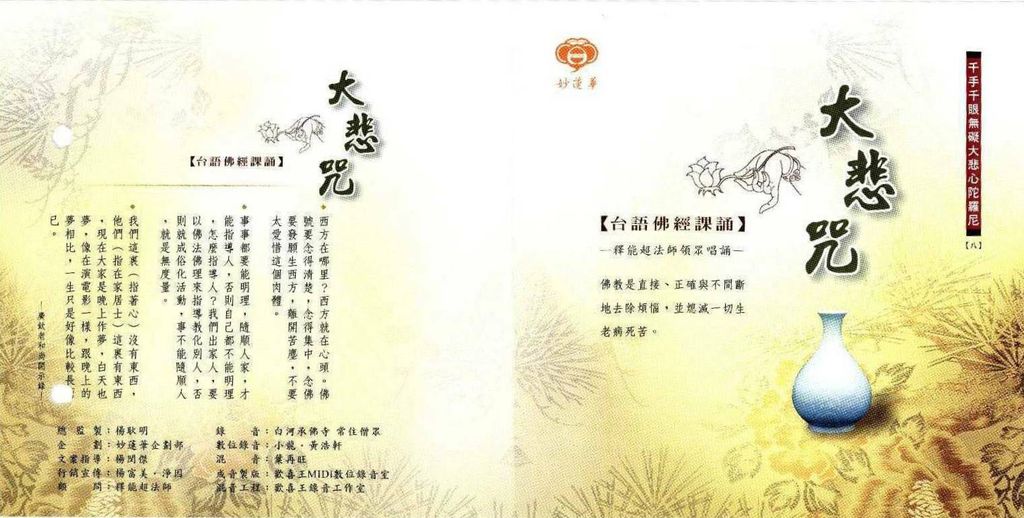 大悲咒
【台語佛經課誦】
西方在哪里?西方就在心頭。佛
號要念得清楚,念得集中,念佛
要發願生西方,離開苦塵,不要
太愛惜這個肉體。
事事都要能明理,隨順人家,才
能指導人,否則自己都不能明理
,怎麼指導人?我們出家人,要
以佛法佛理來指導教化別人,否
則就成俗化活動,事不能隨順人
,就是無度量。
我們這裏(指著心)沒有東西,
他們(指在家居士)這裏有東西
,現在大家是晚上作夢,白天也
夢,像在演電影一樣,跟晚上的
夢相比,一生只是好像比較長
已。
—廣欽老和尚開示錄—
總監製:楊耿明
企劃:妙蓮華企劃部
文案指導:楊閔傑
行銷宣傳:楊富美·淨因
顧問:釋能超法師
錄音:白河承佛寺 常住僧眾
數位錄音:小龍·黃浩軒
混音:葉再旺
成音製版:歡喜王MIDi數位錄音室
混音工程:歡喜王錄音工作室
妙蓮華
千手千眼無礙大悲心陀羅尼
【八】
大悲咒
【台語佛經課誦】
—釋能超法師領眾唱誦—
佛教是直接、正確與不間斷
地去除煩惱,並熄滅一切生
老病死苦。